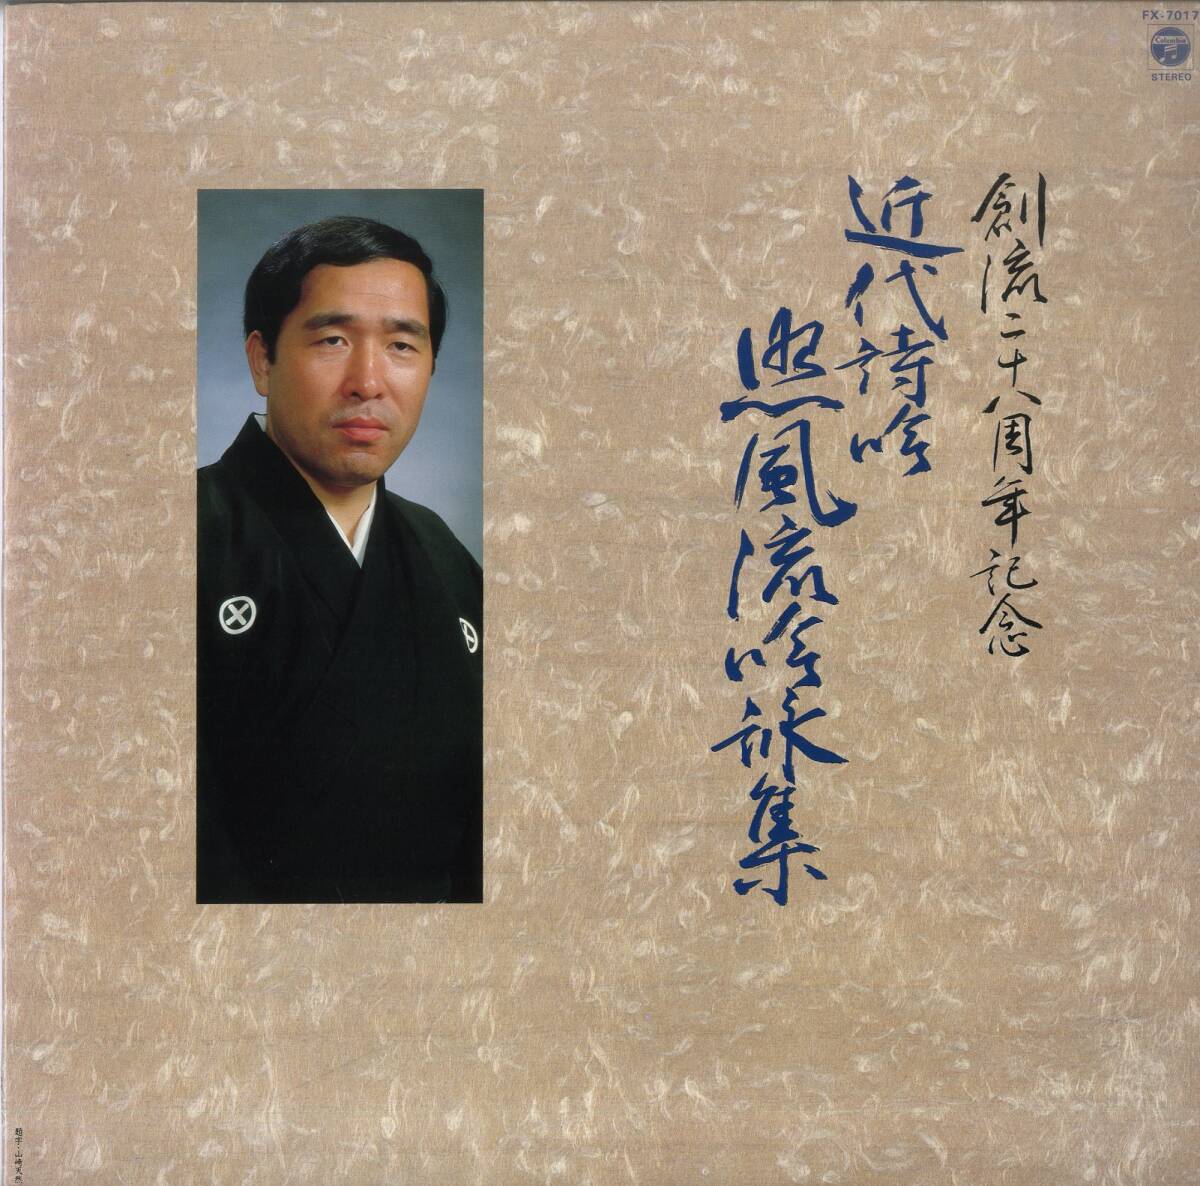 FX-7017
Columbia
STEREO
創流二十八周年記念
近代詩吟
照風流吟詠集
題字・山崎天然